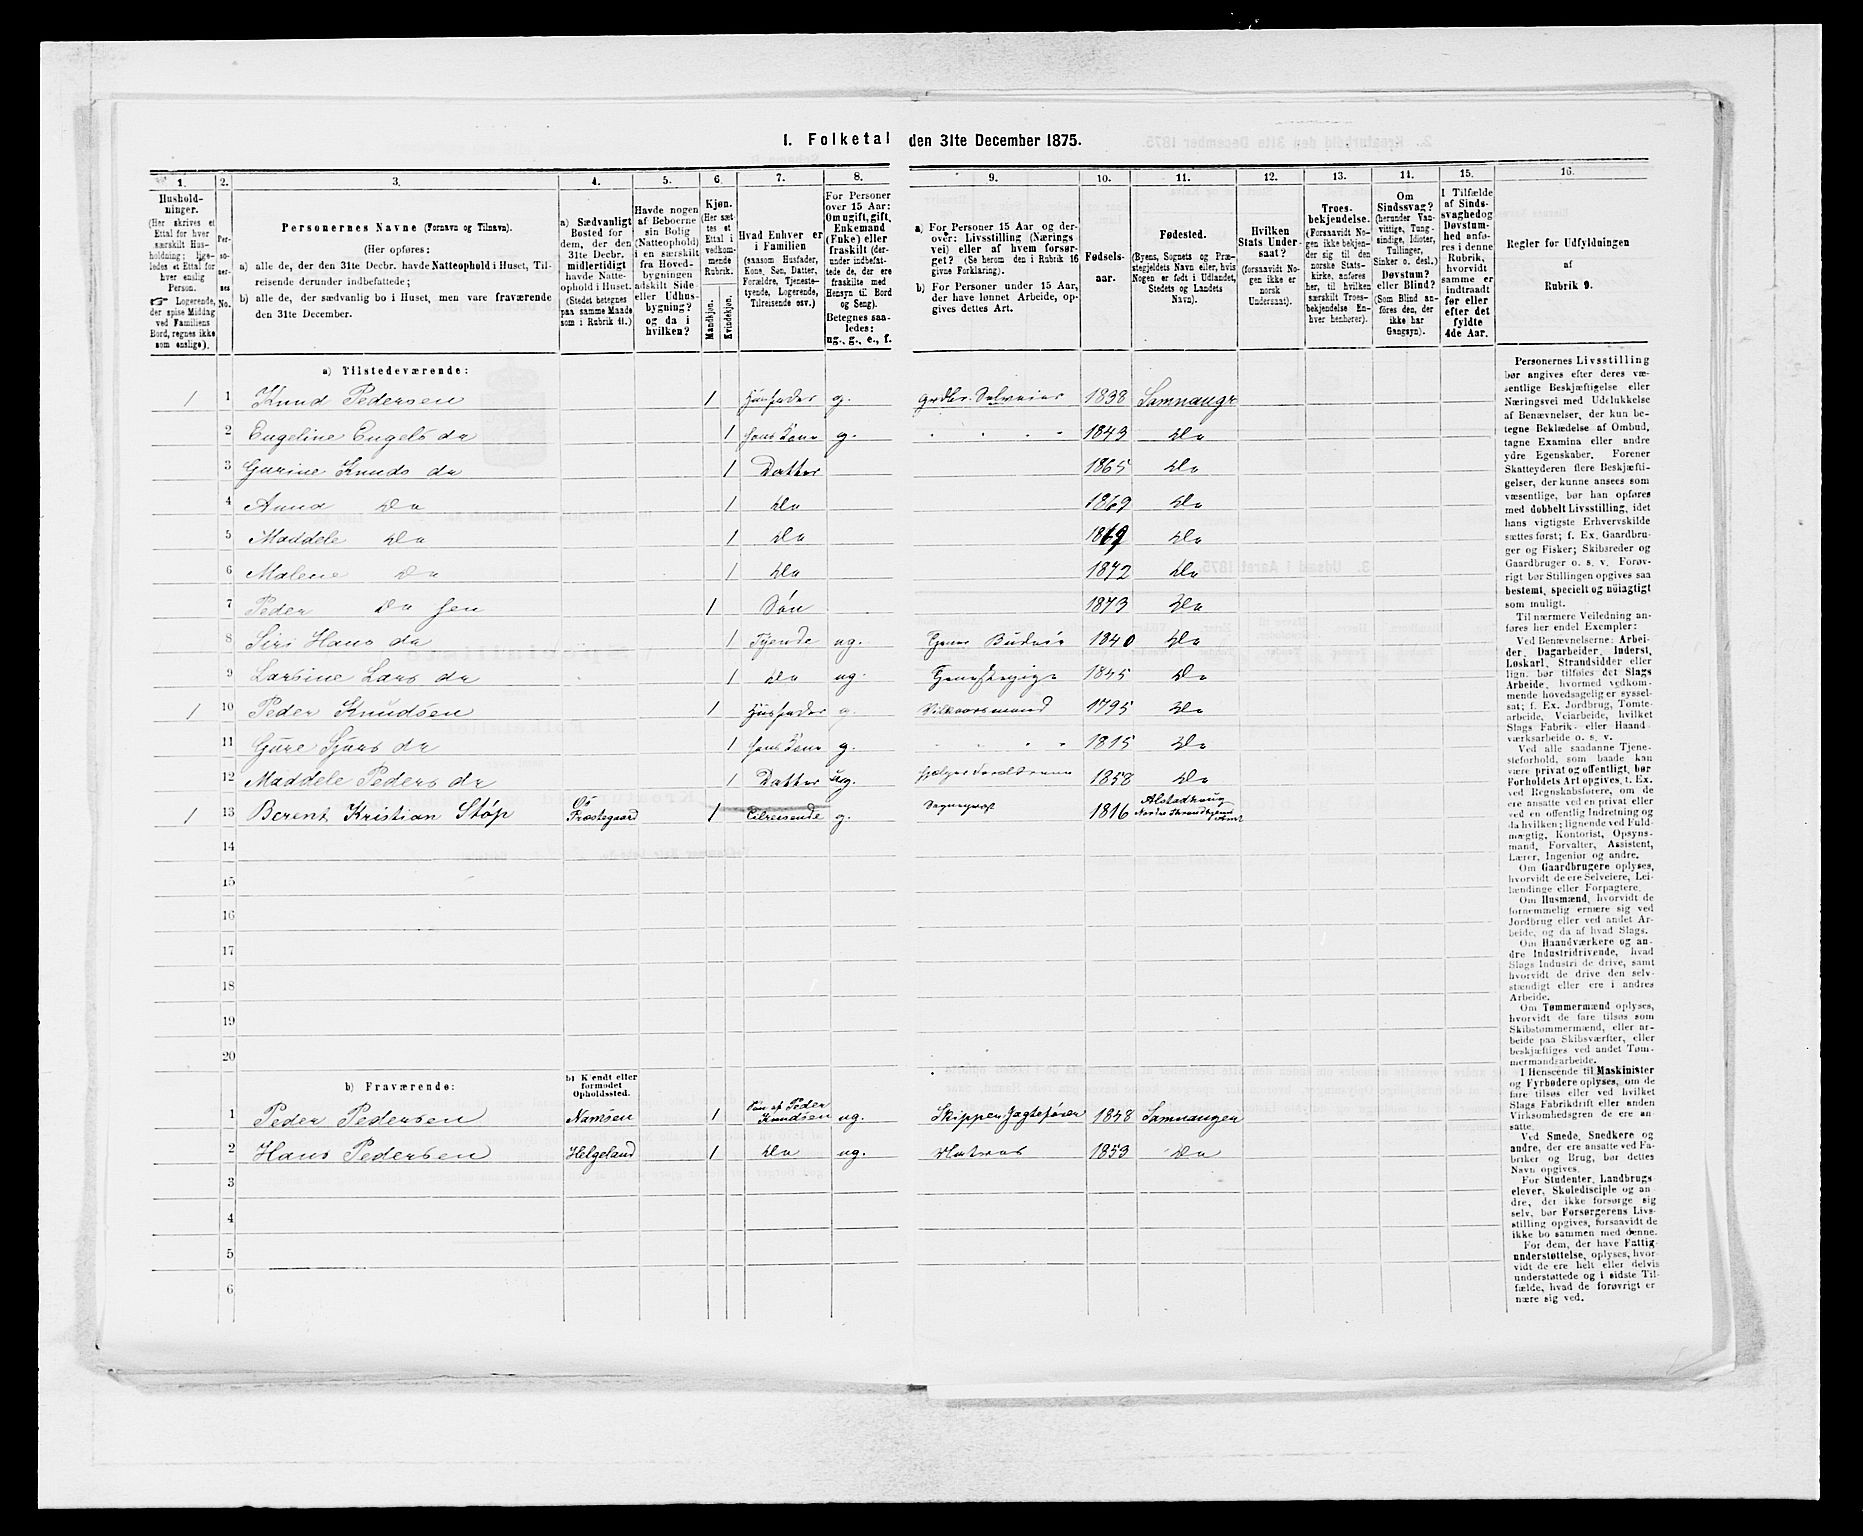 I. Folketal den 31te December 1875.
1. 2. 3. 4. 5. 6. 7. 8. 9. 10. 11. 12. 13. 14. 15. 16.
Hushold-
ninger.
(Her skrives et
Ettal for hver
særskilt Hus-
holdning; lige-
ledes et Ettal for
hver enslig
Person.
☞ Logerende,
der spise Middag
ved Familiens
Bord, regnes ikke
som enslige).
Per-
so-
ner-
nes
No.
Personernes Navne (Fornavn og Tilnavn).
(Her opføres:
a) alle de, der den 31te Decbr. havde Natteophold i Huset, Til-
reisende derunder indbefattede;
b) alle de, der sædvanlig bo i Huset, men vare fraværende
den 31te December.
a) Sædvanligt
Bosted for
dem, der den
31te Decbr.
midlertidigt
havde Natte-
ophold i Huset.
(Stedet betegnes
paa samme Maade
som i Rubrik 11.)
Havde nogen
af Beboerne
sin Bolig
(Natteophold)
i en særskilt
fra Hoved-
bygningen
adskilt Side-
eller Udhus-
bygning?
og da i
hvilken?
Kjøn.
(Her sæt-
tes et
Ettal i
vedkom-
mende
Rubrik.
Mandkjøn.
Kvindekjøn.
Hvad Enhver er
i Familien
(saasom Husfader,
Kone, Søn, Datter,
Forældre, Tjeneste-
tyende, Logerende,
Tilreisende osv.)
For Personer
over 15 Aar:
Om ugift, gift,
Enkemand
(Enke) eller
fraskilt (der-
under indbefat-
tede de, der ere
fraskilte med
Hensyn til Bord
og Seng).
Betegnes saa-
ledes:
ug., g., e., f.
a) For Personer 15 Aar og der-
over: Livsstilling (Nærings-
vei) eller af hvem forsør-
get? (Se herom den i Rubrik 16
givne Forklaring).
b) For Personer under 15 Aar,
der have lønnet Arbeide, op-
gives dettes Art.
Fødsels-
aar.
Fødested.
(Byens, Sognets og Præ-
stegjeldets Navn eller, hvis
Nogen er født i Udlandet,
Stedets og Landets
Navn).
Hvilken
Stats Under-
saat?
(forsaavidt No-
gen ikke er
norsk
Undersaat).
Troes-
bekjendelse.
(Forsaavidt No-
gen ikke bekjen-
der sig til den
norske Stats-
kirke, anføres
her, til hvilken
særskilt Troes-
bekjendelse En-
hver henhører).
Om
Sindssvag?
(herunder Van-
vittige, Tung-
sindige, Idioter,
Tullinger,
Sinker o. desl.)
Døvstum?
eller Blind?
(Som Blind an-
føres den, der
ikke har
Gangsyn).
I Tilfælde
af Sinds-
svaghed og
Døvstum-
hed anfø-
res i denne
Rubrik,
hvorvidt
samme er
indtraadt
før eller
efter det
fyldte
4de Aar.
Regler for Udfyldningen
af
Rubrik 9.
a) Tilstedeværende:
1 1 Knud Pedersen 1 Husfader g. Selveier 1838 Samnanger
2 Engeline Engels da 1 hans Kone g. " " " 1843 Do
3 Gurine Knuds da 1 Datter 1865 Do
4 Anna Do 1 Do 1869 Do
5 Maddele Do 1 Do 1869 Do
6 Malene Do 1 Do 1872 Do
7 Peder Do sen 1 Søn 1873 Do
8 Siri Hans da 1 Tyende ug. 1840 Do
9 Larsine Lars da 1 Do ug. 1845 Do
1 10 Peder Knudsen 1 Husfader g. Vilkaarsmand 1795 Do
11 Gure Sjurs da 1 hans Kone g. " " " " 1815 Do
12 Maddele Peders da 1 Datter ug. 1858 Do
1 13 Berent Kristian Støp Os Præstegaard 1 Tilreisende g. Sogneprest 1816 Alstadhaug Nordre Throndhjems Amt
14
15
16
17
18
19
20
b) Fraværende:
b) Kjendt eller
formodet
Opholdssted.
1 Peder Pedersen Namsen 1 Søn af Peder Knudsen ug. Skipper, Jagtefører 1848 Samnanger
2 Hans Pedersen Helgeland 1 Do ug. Matros 1853 Do
3
4
5
6
Personernes Livsstilling
bør angives efter deres væ-
sentlige Beskjæftigelse eller
Næringsvei med Udelukkelse
af Benævnelser, der kun be-
tegne Beklædelse af Ombud,
tagne Examina eller andre
ydre Egenskaber. Forener
Skatteyderen flere Beskjæfti-
gelser, der kunne ansees som
væsentlige, bør han opføres
med dobbelt Livsstilling, idet
hans vigtigste Erhvervskilde
sættes først; f. Ex. Gaardbru-
ger og Fisker; Skibsreder og
Gaardbruger o. s. v. Forøv-
rigt bør Stillingen opgives saa
bestemt, specielt og nøiagtigt
som muligt.
Til nærmere Veiledning an-
føres her endel Exempler:
Ved Benævnelserne: Arbei-
der, Dagarbeider, Inderst,
Løskarl, Strandsidder eller
lign. bør tilføies det Slags
Arbeide, hvormed vedkom-
mende hovedsagelig er syssel-
sat; f. Ex. Jordbrug, Tomte-
arbeide, Veiarbeide, hvilket
Slags Fabrik- eller Haand-
værksarbeide o. s. v.
Ved alle saadanne Tjene-
steforhold, som baade kan
være privat og offentlig, bør
Forholdets Art opgives, t. Ex.
ved Regnskabsførere, om de
ere ansatte ved en privat eller
ved en offentlig Indretning og
da hvilken; lignende ved Fuld-
mægtig, Kontorist, Opsyns-
mand, Forvalter, Assistent,
Lærer, Ingeniør og andre.
Om Gaardbrugere oplyses,
hvorvidt de ere Selveiere, Lei-
lændinge eller Forpagtere.
Om Husmænd, hvorvidt de
fornemmelig ernære sig ved
Jordbrug eller ved andet Ar-
beide, og da af hvad Slags.
Om Haandværkere og an-
dre Industridrivende, hvad
Slags Industri de drive, samt
hvorvidt de drive den selv-
stændigt eller ere i andres
Arbeide.
Om Tømmermænd oplyses,
hvorvidt de fare tilsøs som
Skibstømmermænd, eller ar-
beide paa Skibsværfter, eller
beskjæftiges ved andet Tøm-
mermandsarbeide.
I Henseende til Maskinister
og Fyrbødere oplyses, om de
fare tilsøs eller ved hvilket
Slags Fabrikdrift eller anden
Virksomhedsgren de ere an-
satte.
Ved Smede, Snedkere og
andre, der ere ansatte ved Fa-
briker og Brug, bør dettes
Navn opgives.
For Studenter, Landbrugs-
elever, Skoledisciple og an-
dre, det ikke forsørge sig
selv, bør Forsørgerens Livs-
stilling opgives, forsaavidt de
ikke bo sammen med denne.
For dem, der have Fattig-
understøttelse, oplyses, hvor-
vidt de ere helt eller delvis
understøttede og i sidste Til-
fælde, hvad de forøvrigt er-
nære sig ved.